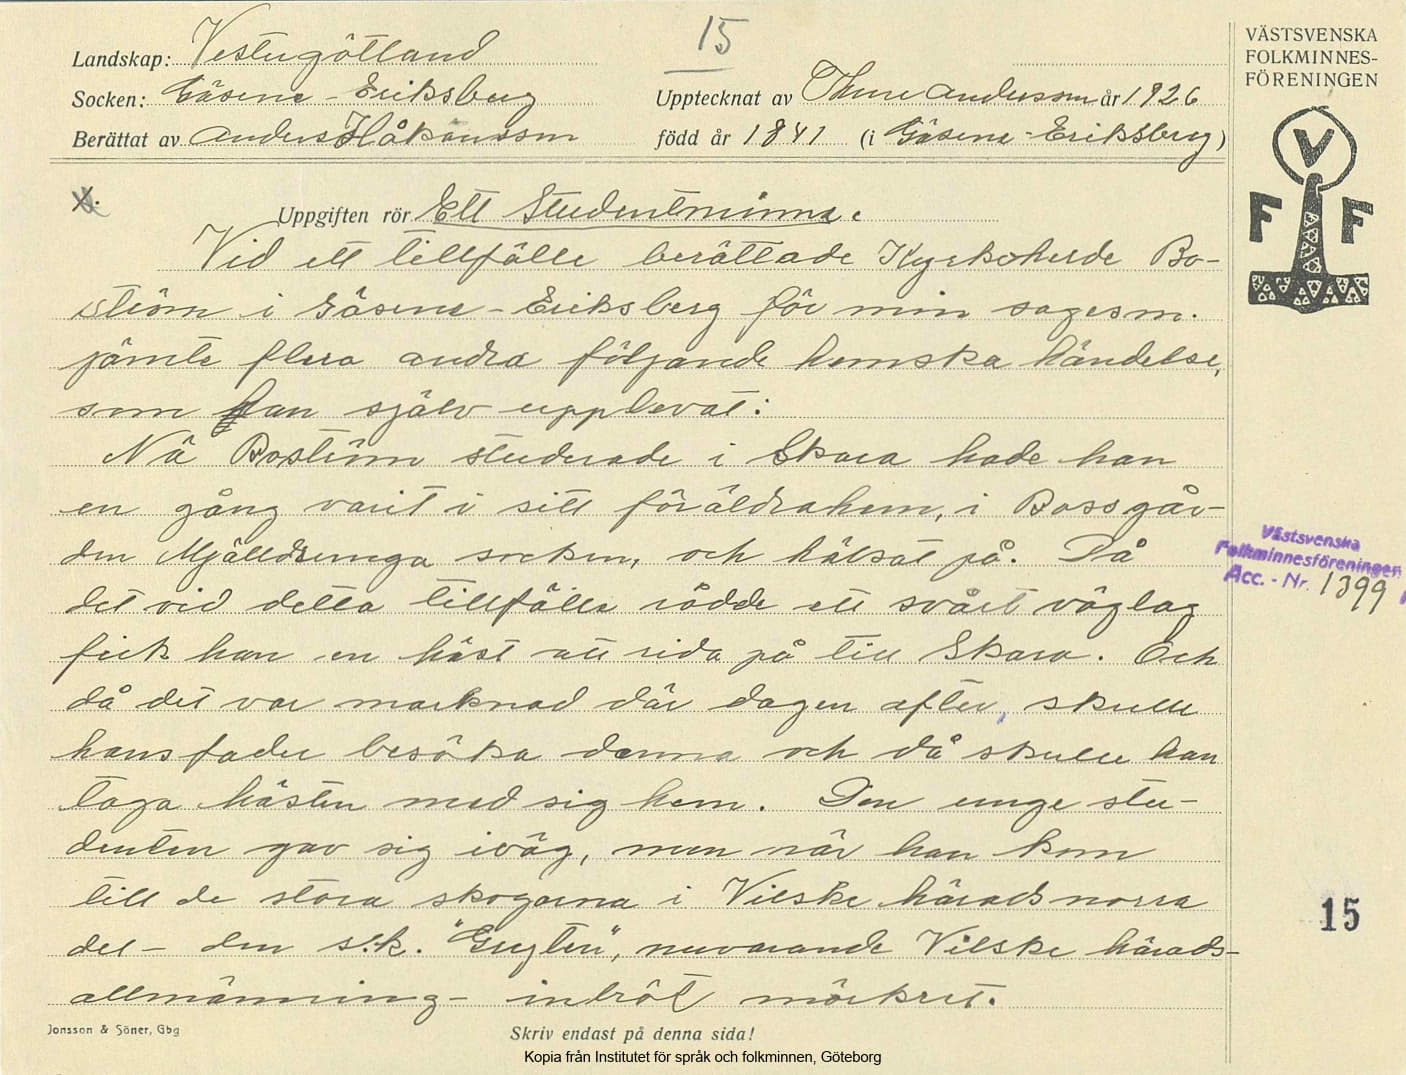 15
Landskap: Vestergötland
Socken: Gäsene - Eriksberg
Upptecknat av Thure Andersson år 1926
Berättat av Anders Håkansson
född år 1841 (i Gäsene - Eriksberg)
VÄSTSVENSKA
FOLKMINNES-
FÖRENINGEN
V
F F
Uppgiften rör Ett Studentminne.
Vid ett tillfälle berättade Kyrkoherde Bo-
ström i Gäsene - Eriksberg för min sagesm.
jämte flera andra följande hemska händelse,
som han själv upplevat:
Nä Boström studerade i Skara hade han
en gång varit i sitt föräldrahem, i Bossgår-
den Mjälldrunga socken, och hälsat på. Då
det vid detta tillfälle rådde ett svårt väglag
fick han en häst att rida på till Skara. Och
då det var marknad där dagen efter, skulle
hans fader besöka denna och då skulle han
taga hästen med sig hem. Den unge stu-
denten gav sig iväg, men när han kom
till de stora skogarna i Vilske härads norra
del - den s.k. "Grytan", nuvarande Vilske härads-
allmänning - inbröt mörkret.
Västsvenska
Folkminnesföreningen
Acc. - Nr. 1399
15
Jonsson & Söner, Gbg
Skriv endast på denna sida!
Kopia från Institutet för språk och folkminnen, Göteborg